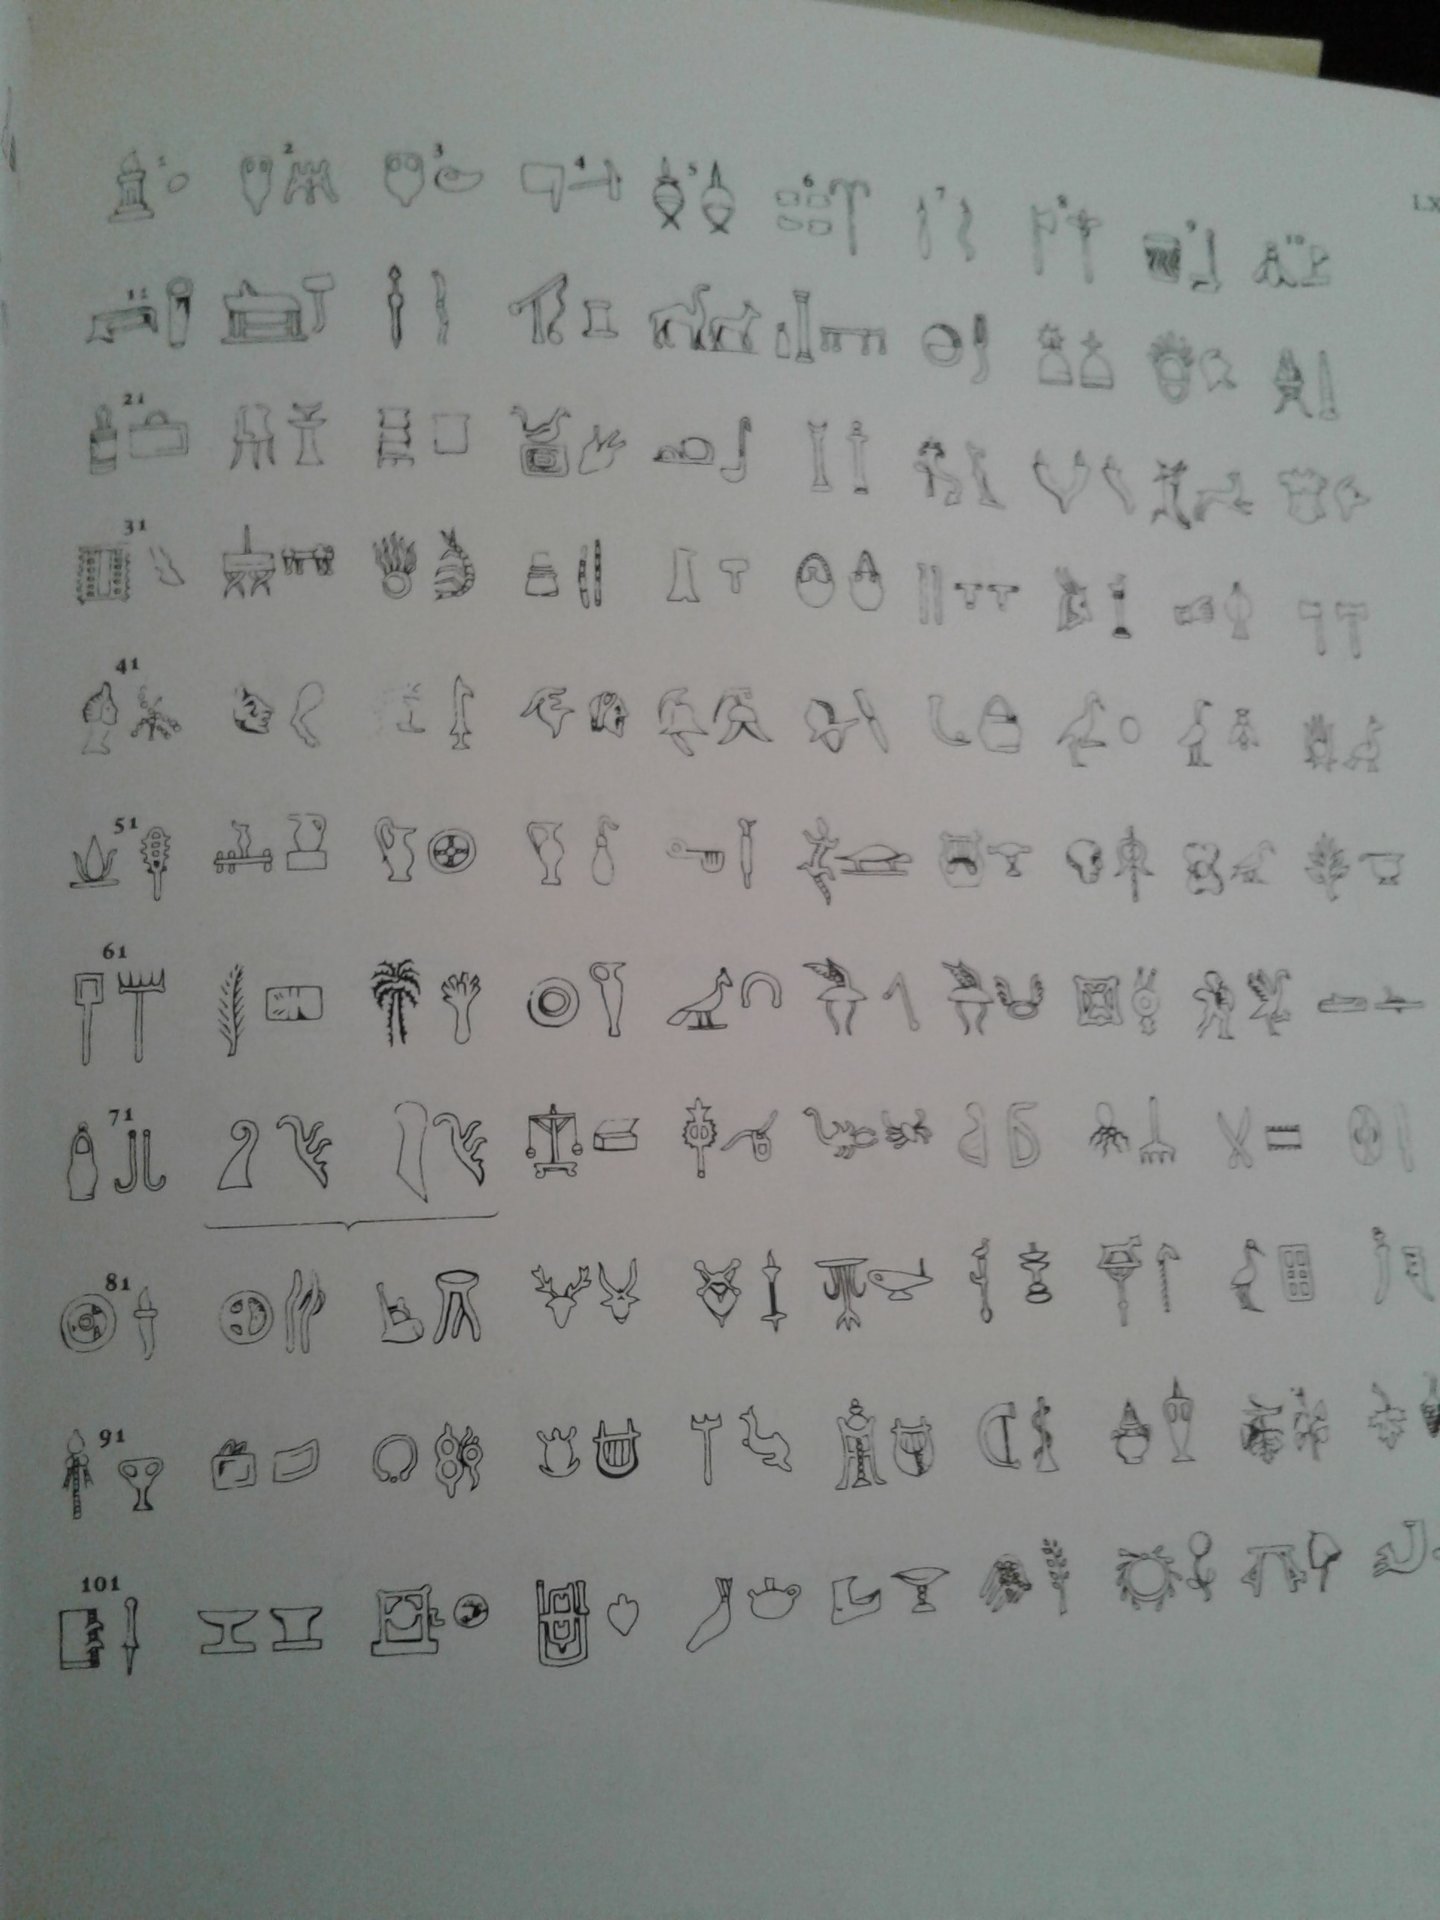 LX
1 2 3 4 5 6 7 8 9 10
11
21
31
41
51
61
71
81
91
101